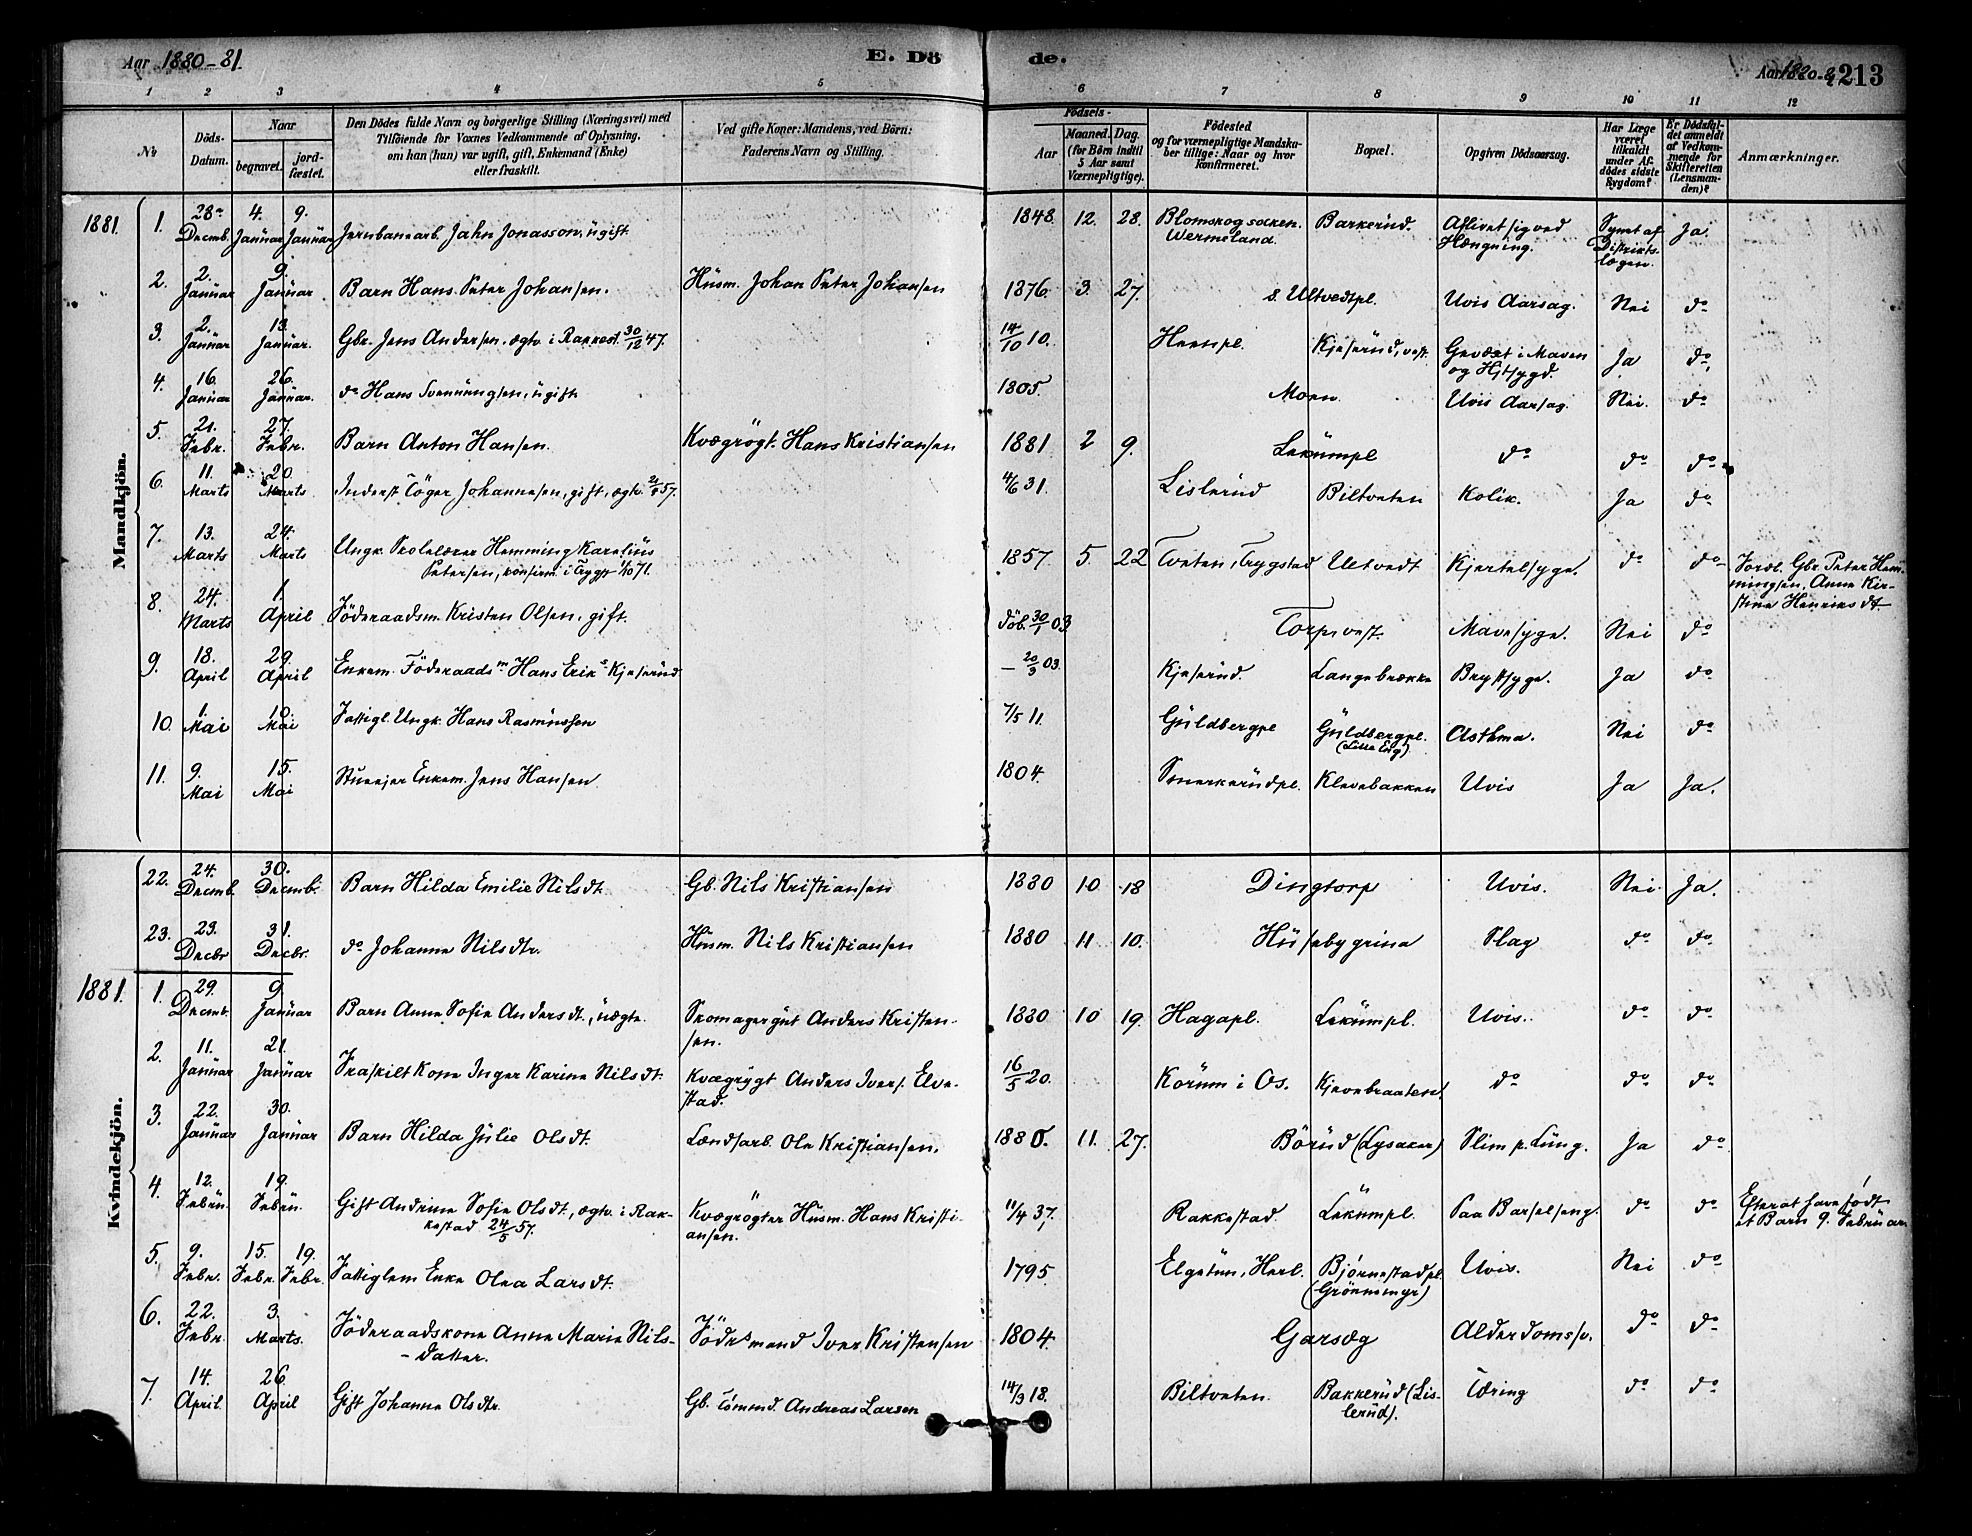 Aar 1880-81.
E. Dö
de.
Aar 1880-81 213
1 2 3 4 5 6 7 8 9 10 11 12
No
Döds-Datum.
Naar
begravet.
jord-fæstet.
Den Dödes fulde Navn og borgerlige Stilling (Næringsvei) med
Tilföiende for Voxnes Vedkommende af Oplysning,
om han (hun) var ugift, gift, Enkemand (Enke)
eller fraskilt.
Ved gifte Koner: Mandens, ved Börn:
Faderens Navn og Stilling.
Födsels-
Aar
Maaned. Dag.
(for Börn indtil
5 Aar samt
Værnepligtige).
Födested
og for værnepligtige Mandska-
ber tillige: Naar og hvor
konfirmeret.
Bopæl.
Opgiven Dödsaarsag.
Har Læge
været
tilkaldt
under Af-
dödes sidste
Sygdom?
Er Dödsfal-
det anmeldt
af Vedkom-
mende for
Skifteretten
(Lensman-
den)?
Anmærkninger.
Mandkjön.
1881. 1. 28de Decmb. 4. Januar 9. Januar Jernbanearb. Jahn Jonasson, ugift. 1848. 12. 28. Blomskog socken. Wermeland. Barkerud. Aflivet sig ved Hængning. Synet af Distrikts-lægen. Ja.
2. 2. Januar 9. Januar Barn Hans Peter Johansen. Husm. Johan Peter Johansen 1876. 3. 27. s. Ultvedtpl. Uvis Aarsag. Nei do
3. 2. Januar 13. Januar. Gbr. Jens Andersen, ægtv. i Rakkest. 30/12 47. 14/10 10. Heenpl. Kjeserud, vest. Gevæxt i Maven og Hjtsygd. Ja do,
4. 16. Januar 26. Januar. do Hans Svenningsen, ugift 1805. Moen Uvis Aarsag. Nei. do
5. 21. Febr. 27. Febr. Barn Anton Hansen. Kvægrögt. Hans Kristiansen 1881 2 9. Lekumpl do do do
6. 11. Marts 20. Marts Inderst Töger Johannesen, gift, ægtv. 57. 4/6 31. Lislerud Biltveten Kolik. Ja do
7. 13. Marts 24. Marts Ungk. Skolelærer Hemming Karelius
Petersen, konfirm. i Trygst 1/10 71. 1857. 5. 22 Tveten, Trygstad Ultvedt Kjertelsyge. do do Forel. Gbr. Peter Hem-
mingsen, Anne Kir-
stine Henriks dt.
8. 24. Marts 1. April Föderaadsm. Kristen Olsen, gift. döb. 30/1 03 Torp vest. Mavesyge. Nei do
9. 18. April 29. April Enkem. Föderaadsm Hans Eriks Kjeserud - 20/3 03. Kjeserud. Langebrække Brystsyge. Ja do
10. 1. Mai 10. Mai Fattigl. Ungk. Hans Rasmussen 7/5 11. Guldbergpl Guldbergpl. (Lille Eng). Asthma. Nei do
11. 9. Mai 15. Mai Stueejer Enkem. Jens Hansen 1804. Smerkerudpl. Klevebakken Uvis Ja Ja.
Kvindekjön.
22. 24. Decmb. 30. Decmbr. Barn Hilda Emilie Nilsdt. Gb. Nils Kristiansen 1880 10 18 Dingtorp Uvis. Nei. Ja.
23. 23. Decbr 31. Decbr. do Johanne Nilsdtr. Husm. Nils Kristiansen 1880 11 10. Husebygrina Slag do do
1881. 1. 29. Decmb. 9. Januar Barn Anne Sofie Andersdt., uægte. Skomagergut Anders Kristen-
sen. 1880 10 19. Hagapl. Lekumpl. Uvis. do do
2. 11. Januar 21. Januar Fraskilt Kone Inger Karine Nilsdt. Kvægrögt Anders Ivers. Elve-
stad. 16/5 20. Korum i Os. Kjevebraaten. do do do
3. 22. Januar 30. Januar Barn Hilda Julie Olsdt. Lændsarb. Ole Kristiansen. 1880. 11. 27. Börud (Lysaker) Slim p. Lung. Ja do
4. 12. Febru. 19. Febru. Gift Andrine Sofie Olsdt., ægtv. i Rak-
kestad 24/5 57. Kvægrögter Husm. Hans Kristi-
ansen. 11/4 37. Rakkestad. Lekumpl. Paa Barselseng. do do Efter at have født
et Barn 9. Februar.
5. 9. Febr. 15. Febr. 19. Febr. Fattiglem Enke Olea Larsdt. 1795. Elgetun, Herl. Bjørnestadpl. (Grönnemyr) Uvis. Nei do
6. 22. Febr. 3. Marts. Föderaadskone Anne Marie Nils-
datter. Föders mand Iver Kristensen 1804. Garsæg Alderdomssv. do do
7. 14. April. 26. April Gift Johanne Olsdtr. Gb. Tømmd. Andreas Larsen 14/9 18. Biltveten. Bakkerud (Lis-
lerud). Tæring do do